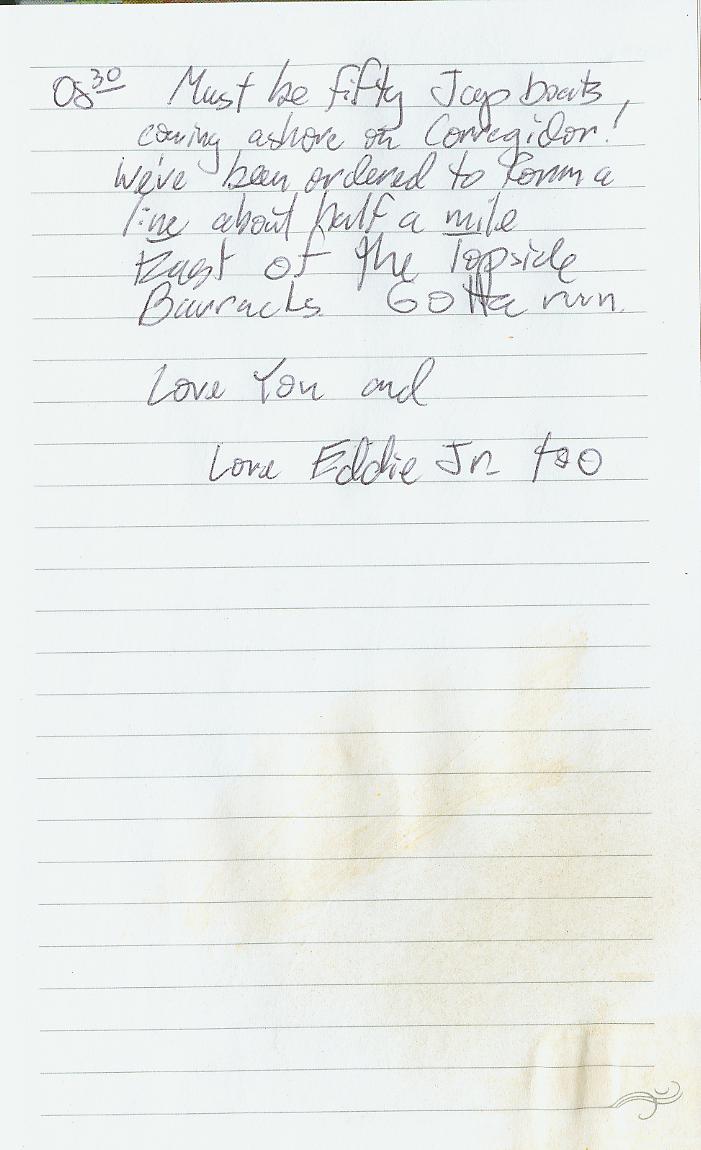 05³⁰ Must be fifty Jap boats
coming ashore on Corregidor!
We've been ordered to form a
line about half a mile
East of the Topside
Barracks. GOtta run.
Love You and
Love Eddie Jr. too